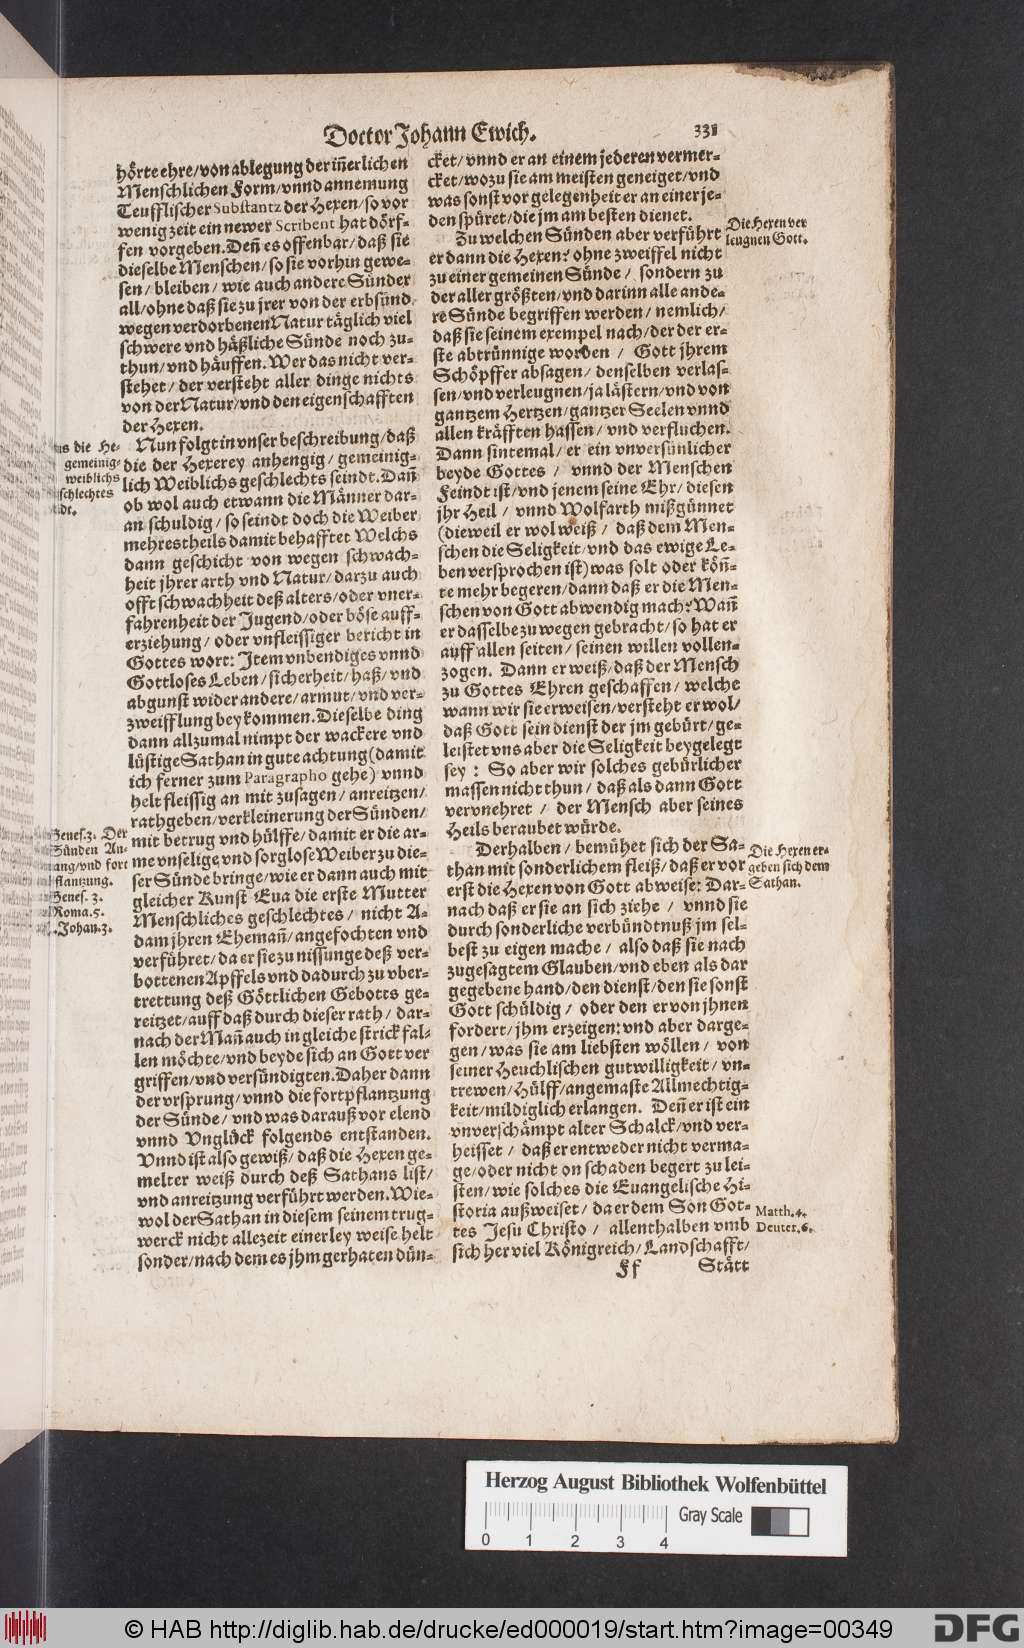 Doctor Johann Ewich. 331
hörte ehre/von ablegung der iñerlichen
Menschlichen Form/vnnd annemung
Teufflischer Substantz der Hexen/so vor
wenig zeit ein newer Scribent hat dörf-
fen vorgeben. Deñ es offenbar/daß sie
dieselbe Menschen/so sie vorhin gewe-
sen/bleiben/wie auch andere Sünder
all/ohne daß sie zu jrer von der erbsünd
wegen verdorbenen Natur täglich viel
schwere vnd häßliche Sünde noch zu-
thun/vnd häuffen. Wer das nicht ver-
stehet/der versteht aller dinge nichts
von der Natur/vnd den eigenschafften
der Hexen.
Nun folgt in vnser beschreibung/daß
die der Hexerey anhengig/gemeinig-
lich Weiblichs geschlechts seindt. Dañ
ob wol auch etwann die Männer dar-
an schuldig/so seindt doch die Weiber
mehrestheils damit behafftet Welchs
dann geschicht von wegen schwach-
heit jhrer arth vnd Natur/darzu auch
offt schwachheit deß alters/oder vner-
fahrenheit der Jugend/oder böse auff-
erziehung/oder vnfleissiger bericht in
Gottes wort: Item vnbendiges vnnd
Gottloses Leben/sicherheit/haß/vnd
abgunst wider andere/armut/vnd ver-
zweifflung bey kommen. Dieselbe ding
dann allzumal nimpt der wackere vnd
lüstige Sathan in gute achtung (damit
ich ferner zum Paragrapho gehe) vnnd
helt fleissig an mit zusagen/anreitzen/
rathgeben/verkleinerung der Sünden/
mit betrug vnd hülffe/damit er die ar-
me vnselige vnd sorglose Weiber zu die-
ser Sünde bringe/wie er dann auch mit
gleicher Kunst Eua die erste Mutter
Menschliches geschlechtes/nicht A-
dam jhren Ehemañ/angefochten vnd
verführet/da er sie zu nissunge deß ver-
bottenen Apffels vnd dadurch zu vber-
trettung deß Göttlichen Gebotts ge-
reitzet/auff daß durch dieser rath/dar-
nach der Mañ auch in gleiche strick fal-
len möchte/vnd beyde sich an Gott ver
griffen/vnd versündigten. Daher dann
der vrsprung/vnnd die fortpflantzung
der Sünde/vnd was darauß vor elend
vnnd Vnglück folgends entstanden.
Vnnd ist also gewiß/daß die Hexen ge-
melter weiß durch deß Sathans list/
vnd anreitzung verführt werden. Wie-
wol der Sathan in diesem seinem trug-
werck nicht allezeit einerley weise helt
sonder/nach dem es jhm gerhaten dün-
die He-
gemeinig-
weiblichs
schlechtes
Genes. 3. Der
Sünden An-
fang/vnd fort
pflantzung.
Genes. 3.
Roma. 5.
Johan. 3.
cket/vnnd er an einem jederen vermer-
cket/wozu sie am meisten geneiget/vnd
was sonst vor gelegenheit er an einer je-
den spüret/die jm am besten dienet.
Zu welchen Sünden aber verführt
er dann die Hexen? ohne zweiffel nicht
zu einer gemeinen Sünde/sondern zu
der aller größten/vnd darinn alle ande-
re Sünde begriffen werden/nemlich/
daß sie seinem exempel nach/der der er-
ste abtrünnige worden/Gott jhrem
Schöpffer absagen/denselben verlas-
sen/vnd verleugnen/ja lästern/vnd von
gantzem Hertzen/gantzer Seelen vnnd
allen kräfften hassen/vnd verfluchen.
Dann sintemal/er ein vnversünlicher
beyde Gottes/vnnd der Menschen
Feindt ist/vnd jenem seine Ehr/diesen
jhr Heil/vnnd Wolfarth mißgünnet
(dieweil er wol weiß/daß dem Men-
schen die Seligkeit/vnd das ewige Le-
ben versprochen ist) was solt oder köñ-
te mehr begeren/dann daß er die Men-
schen von Gott abwendig mach? Wañ
er dasselbe zu wegen gebracht/so hat er
auff allen seiten/seinen willen vollen-
zogen. Dann er weiß/daß der Mensch
zu Gottes Ehren geschaffen/welche
wann wir sie erweisen/versteht er wol/
daß Gott sein dienst der jm gebürt/ge-
leistet vns aber die Seligkeit beygelegt
sey: So aber wir solches gebürlicher
massen nicht thun/daß als dann Gott
vervnehret/der Mensch aber seines
Heils beraubet würde.
Derhalben/bemühet sich der Sa-
than mit sonderlichem fleiß/daß er vor
erst die Hexen von Gott abweise: Dar-
nach daß er sie an sich ziehe/vnnd sie
durch sonderliche verbündtnuß jm sel-
best zu eigen mache/also daß sie nach
zugesagtem Glauben/vnd eben als dar
gegebene hand/den dienst/den sie sonst
Gott schüldig/oder den er von jhnen
fordert/jhm erzeigen: vnd aber darge-
gen/was sie am liebsten wöllen/von
seiner Heuchlischen gutwilligkeit/vn-
trewen/Hülff/angemaste Allmechtig-
keit/mildiglich erlangen. Deñ er ist ein
vnverschämpt alter Schalck/vnd ver-
heisset/daß er entweder nicht verma-
ge/oder nicht on schaden begert zu lei-
sten/wie solches die Euangelische Hi-
storia außweiset/da er dem Son Got-
tes Jesu Christo/allenthalben vmb
sich her viel Königreich/Landschafft/
Ff Stätt
Die Hexen ver
leugnen Gott.
Die Hexen er-
geben sich dem
Sathan.
Matth. 4.
Deuter. 6.
Herzog August Bibliothek Wolfenbüttel
Gray Scale
0 1 2 3 4
© HAB http://diglib.hab.de/drucke/ed000019/start.htm?image=00349
DFG